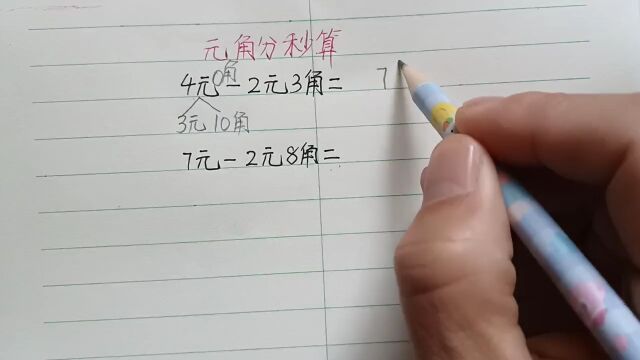 元角分秒算
4元0角-2元3角= 7
3元 10角
7元-2元8角=